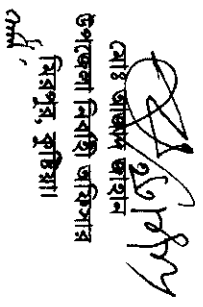 মোঃ আজাদ জাহান
উপজেলা নির্বাহী অফিসার
মিরপুর, কুষ্টিয়া।